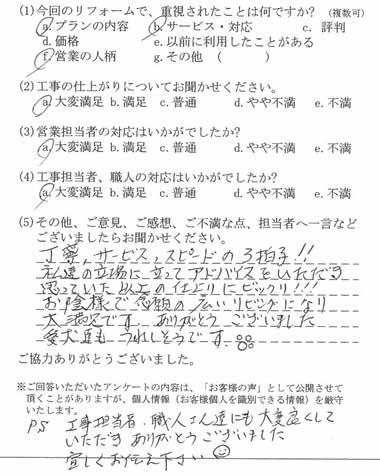 (1)今回のリフォームで、重視されたことは何ですか? (複数可)
a.プランの内容 b.サービス・対応 c. 評判
d.価格 e.以前に利用したことがある
f.営業の人柄 g.その他 ( )
(2)工事の仕上がりについてお聞かせください。
a.大変満足 b.満足 c.普通 d.やや不満 e.不満
(3)営業担当者の対応はいかがでしたか?
a.大変満足 b.満足 c.普通 d.やや不満 e.不満
(4)工事担当者、職人の対応はいかがでしたか?
a.大変満足 b.満足 c.普通 d.やや不満 e.不満
(5)その他、ご意見、ご感想、ご不満な点、担当者へ一言など
ございましたらお聞かせください。
丁寧,サービス,スピードの3拍子!!
私達の立場に立ってアドバイスをいただき
思っていた以上の仕上りにビックリ!!!
お陰様で念願の広いリビングになり
大満足です。ありがとうございました
愛犬達も うれしそうです。
ご協力ありがとうございました。
※ご回答いただいたアンケートの内容は、「お客様の声」として公開させて
頂くことがありますが、個人情報(お客様個人を識別できる情報)を厳守
いたします。
PS 工事担当者、職人さん達にも大変良くして
いただき ありがとうございました
宜しくお伝え下さい